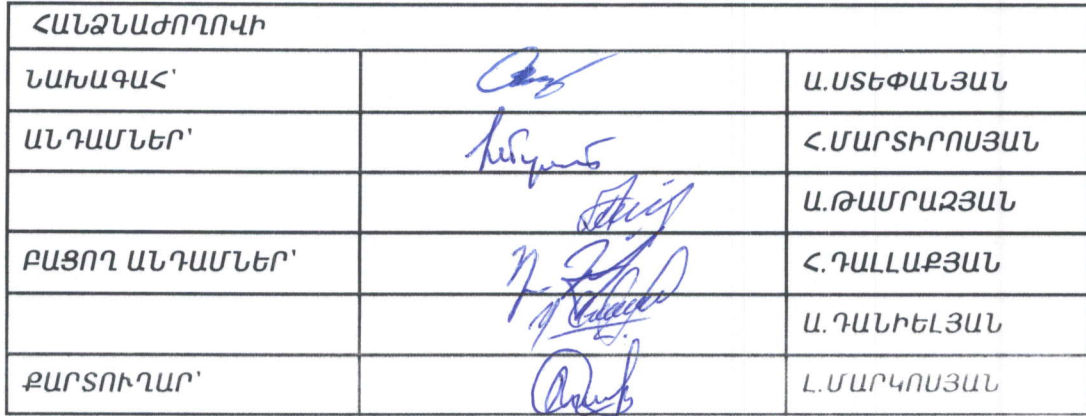 ՀԱՆՁՆԱԺՈՂՈՎԻ
ՆԱԽԱԳԱՀ՝ Ա.ՍՏԵՓԱՆՅԱՆ
ԱՆԴԱՄՆԵՐ՝ Հ.ՄԱՐՏԻՐՈՍՅԱՆ
Ա.ԹԱՄՐԱԶՅԱՆ
ԲԱՑՈՂ ԱՆԴԱՄՆԵՐ՝ Հ.ԴԱԼԼԱՔՅԱՆ
Ա.ԴԱՆԻԵԼՅԱՆ
ՔԱՐՏՈՒՂԱՐ՝ Լ.ՄԱՐԿՈՍՅԱՆ